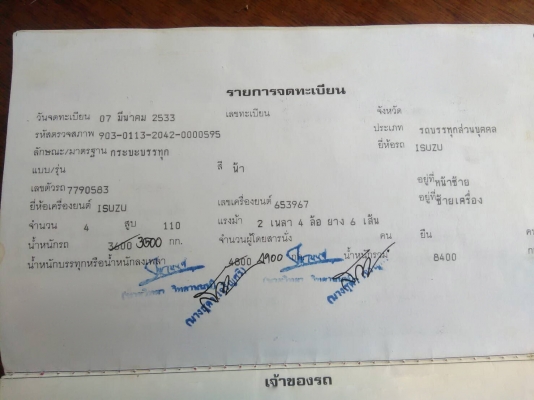 รายการจดทะเบียน
วันจดทะเบียน 07 มีนาคม 2533 เลขทะเบียน จังหวัด
รหัสตรวจสภาพ 903-0113-2042-0000595 ประเภท รถบรรทุกส่วนบุคคล
ลักษณะ/มาตรฐาน กระบะบรรทุก ยี่ห้อรถ ISUZU
แบบ/รุ่น สี ฟ้า
เลขตัวรถ 7790583 อยู่ที่ หน้าซ้าย
ยี่ห้อเครื่องยนต์ ISUZU เลขเครื่องยนต์ 653967 อยู่ที่ ซ้ายเครื่อง
จำนวน 4 สูบ 110 แรงม้า 2 เพลา 4 ล้อ ยาง 6 เส้น
น้ำหนักรถ 3600 3500 กก. จำนวนผู้โดยสารนั่ง คน ยืน
น้ำหนักบรรทุกหรือน้ำหนักลงเพลา 4800 4900 กก. น้ำหนักรวม 8400
เจ้าของรถ